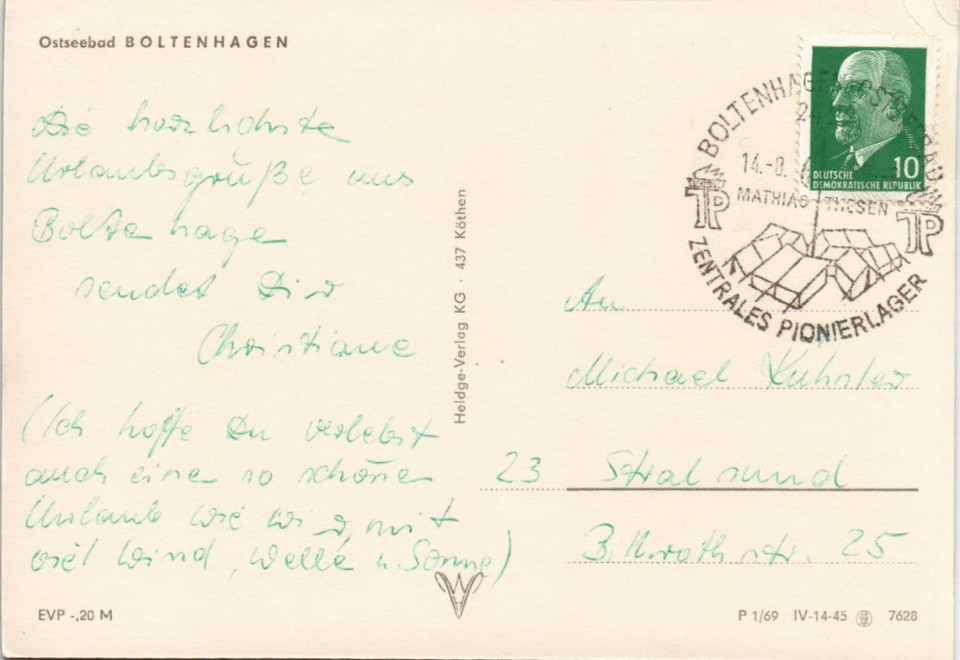 Ostseebad BOLTENHAGEN
Die herzlichste
Urlaubsgrüße aus
Boltenhage
sendet Dir
Christiane
(Ich hoffe Du verlebst
auch einen so schönen
Urlaub wie wir, mit
viel Wind, Welle u. Sonne)
EVP -,20 M
Heldge-Verlag KG · 437 Köthen
BOLTENHAGEN OSTSEEBAD
24
14.-8.
MATHIAS THESEN
TP
TP
ZENTRALES PIONIERLAGER
10
DEUTSCHE
DEMOKRATISCHE REPUBLIK
An
Michael
23 Stralsund
Billrothstr. 25
P 1/69 IV-14-45 7628